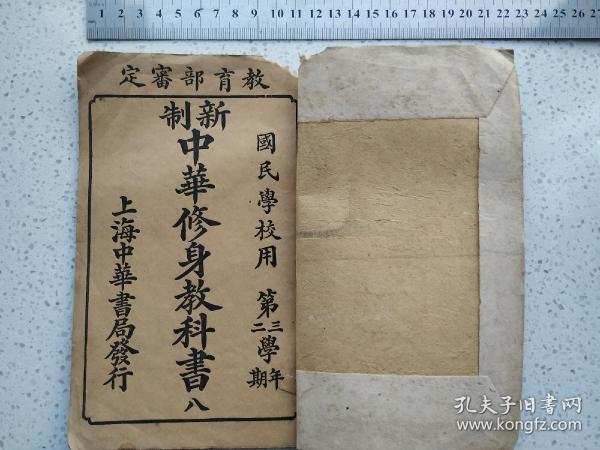 教育部審定
國民學校用 第三學年二期
新制
中華修身教科書 八
上海中華書局發行
孔夫子旧书网
www.kongfz.com
1 2 3 4 5 6 7 8 9 10 11 12 13 14 15 16 17 18 19 20 21 22 23 24 25 26 27